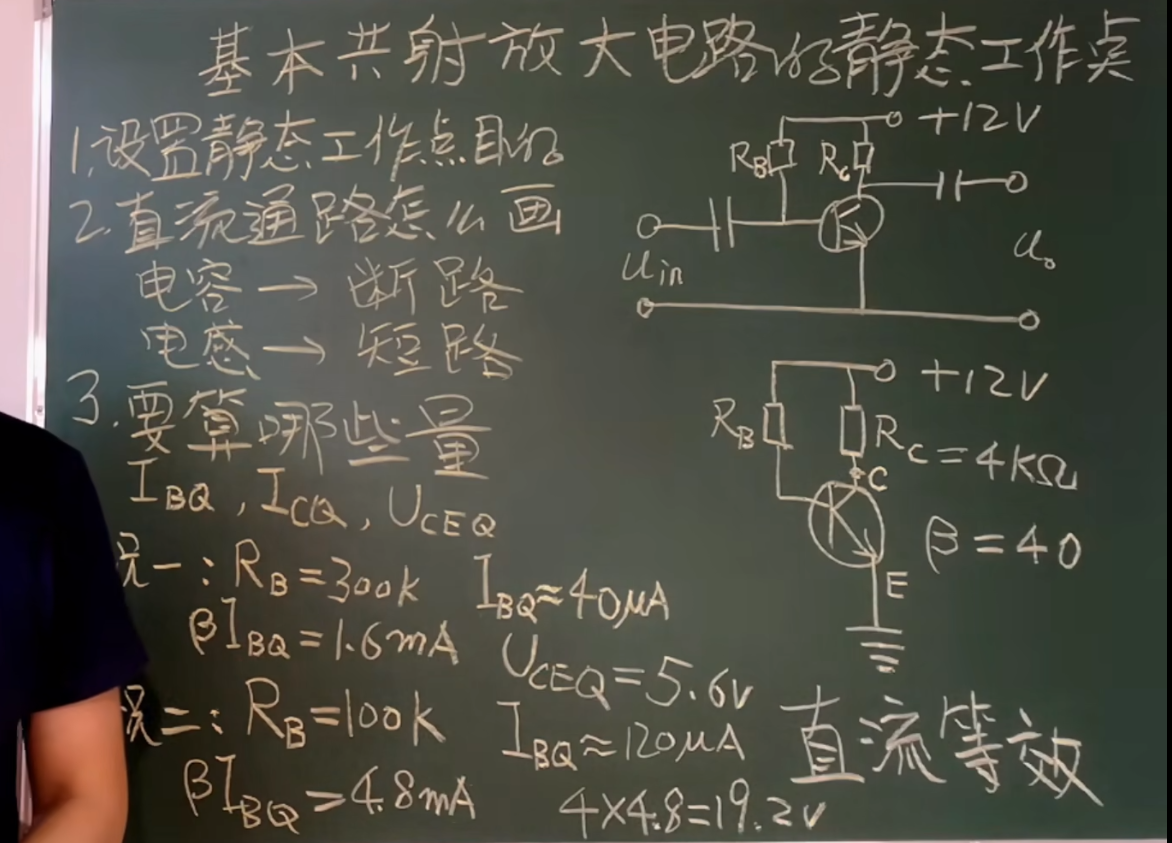 基本共射放大电路的静态工作点
1.设置静态工作点目的
2.直流通路怎么画
电容→断路
电感→短路
3.要算哪些量
I_BQ, I_CQ, U_CEQ
况一:R_B=300k I_BQ≈40μA
βI_BQ=1.6mA U_CEQ=5.6v
况二:R_B=100k I_BQ≈120μA
βI_BQ=4.8mA 4×4.8=19.2v
+12V
R_B R_c
u_in
u_o
+12V
R_B
R_C=4KΩ
C
β=40
E
直流等效